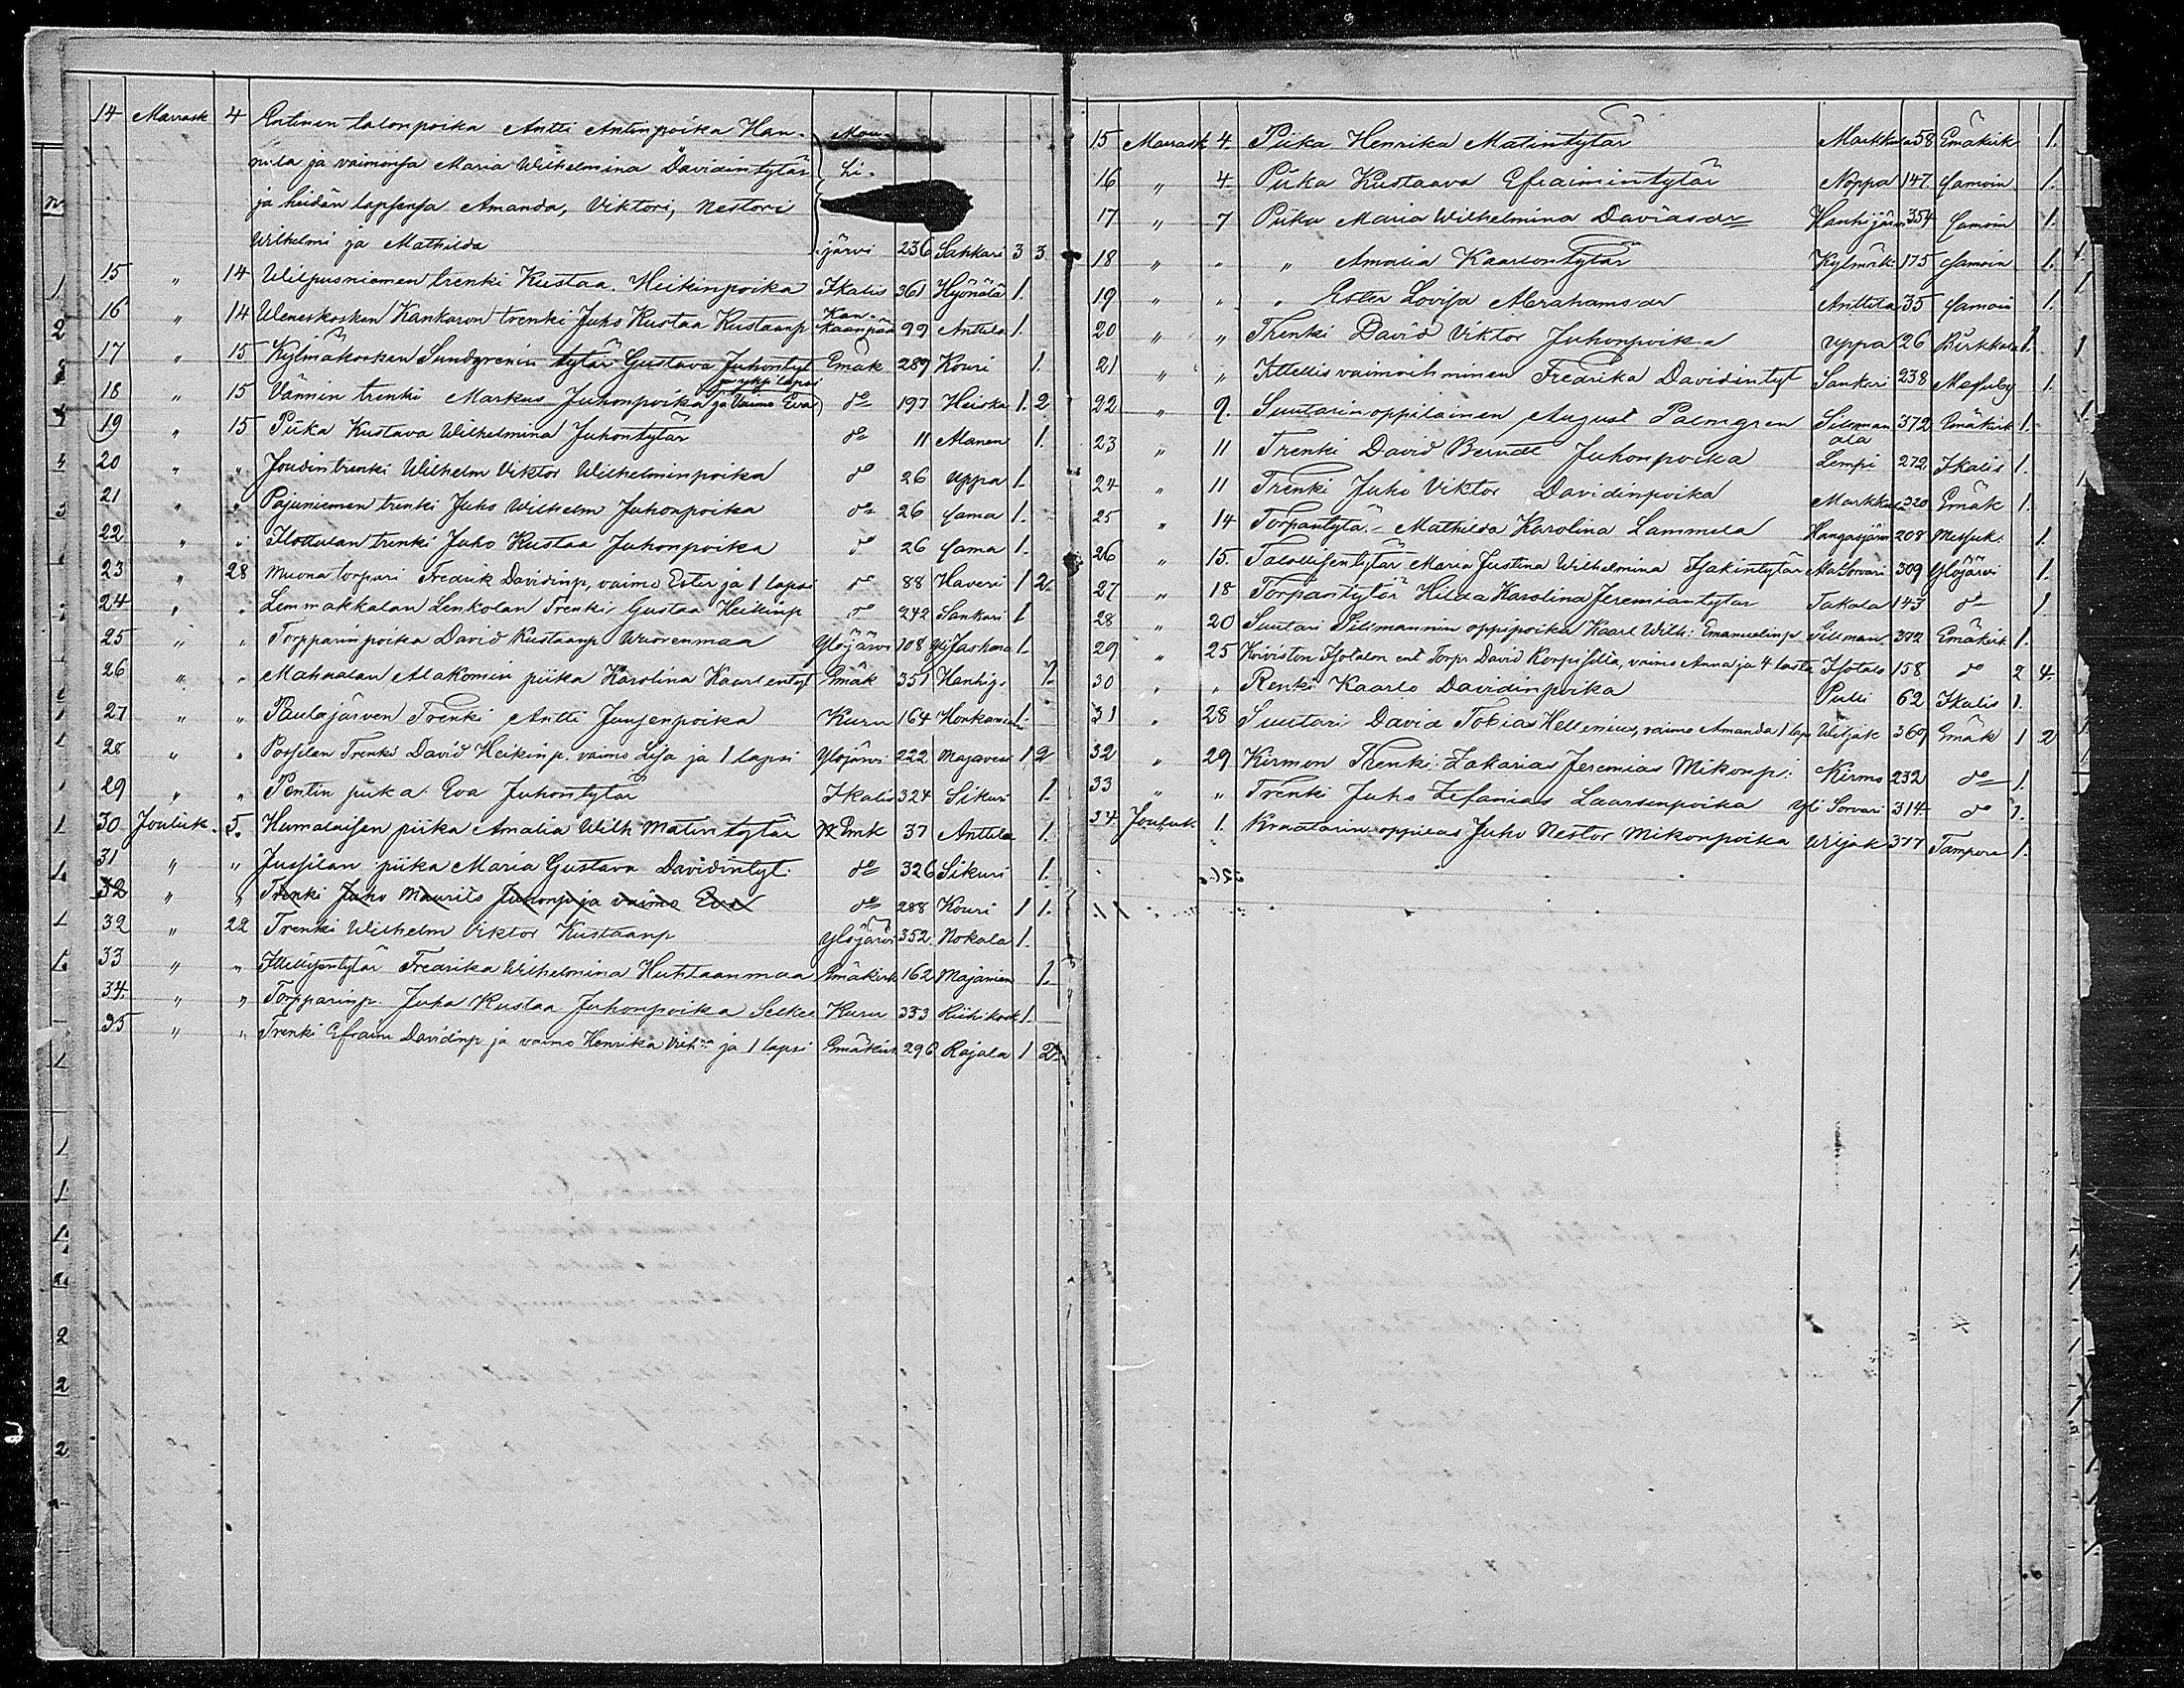 14 Marrask 4 Entinen talonpoika Antti Antinpoika Han-
nula ja vaimonsa Maria Wilhelmina Davidintytär Li-
ja heidän lapsensa Amanda, Viktori, Nestori
Wilhelmi ja Mathilda järvi 236 Sankari 3 3
15 " 14 Wilpusniemen trenki Kustaa Heikinpoika Ikalis 361 Hyönälä 1.
16 " 14 Weneskosken Kankaron trenki Juho Kustaa Kustaanp Kan-kaanpää 99 Anttila 1.
17 " 15 Kylmäkosken Sundgrenin tytär Gustava Juhontyt Emäk 289 Kouri 1.
18 " 15 Vännin trenki Markus Juhonpoika ja Vaimo Eva ja yksi lapsi do 197 Heiska 1. 2.
19 " 15 Piika Kustava Wilhelmina Juhontytär do 11 Alanen 1.
20 " " Joudin trenki Wilhelm Viktor Wilhelminpoika do 26 Uppa 1.
21 " " Pajuniemen trenki Juho Wilhelm Juhonpoika do 26 sama 1.
22 " " Flottalan trenki Juho Kustaa Juhonpoika do 26 sama 1.
23 " 28 Muona torpari Fredrik Davidinp, vaimo Ester ja 1 lapsi do 88 Haveri 1 2.
24 " " Lemmakkalan Lenkolan Trenki Gustaa Heikinp do 242 Sankari 1
25 " " Torpparinpoika David Kustaanp Wuorenmaa Ylöjärvi 108 Yli Jaskara 1.
26 " " Mahnalan Alakomin piika Karolina Kaarlentyt Emäk 351 Hanhij. 1.
27 " " Paulajärven Trenki Antti Jussenpoika Kuru 164 Honkanen 1.
28 " " Possilan Trenki David Heikinp. vaimo Lisa ja 1 lapsi Ylöjärvi 222 Majaveri 1 2
29 " " Pentin piika Eva Juhontytär Ikalis 324 Sikuri 1.
30 Jouluk. 5. Humalaisen piika Amalia Wilh Matintytär Emk 37 Anttila 1.
31 " " Jussilan piika Maria Gustava Davidintyt. do 326 Sikuri 1.
32 " " Trenki Juho Maurits Juhonp ja vaimo Eva do 288 Kouri 1 1.
32 " 22 Trenki Wilhelm Viktor Kustaanp Ylöjärvi 352 Nokala 1.
33 " " Itsellisentytär Fredrika Wilhelmina Huhtaanmaa Emäkirk 162 Majanien 1.
34. " " Torpparinp. Juha Kustaa Juhonpoika Selkee Kuru 333 Riihikosk 1.
35 " " Trenki Efraim Davidinp ja vaimo Henrika Vilh:na ja 1 lapsi Emäkirk 296 Rajala 1 2.
15 Marrask 4. Piika Henrika Matintytär Markkula 58 Emäkirk 1.
16 " 4. Piika Kustaava Efraimintytär Noppa 147 samoin 1.
17 " 7 Piika Maria Wilhelmina Davidsdr Hanhijärvi 354 samoin 1.
18 " " " Amalia Kaarlontytär Kylmäk: 175 samoin 1.
19 " " " Ester Lovisa Abrahamsdr Anttila 35 samoin 1.
20 " " Trenki David Viktor Juhonpoika Uppa 26 Birkkala 1.
21 " " Itsellis vaimoihminen Fredrika Davidintyt Sankari 238 Messuby 1.
22 " 9. Suutarin oppilainen August Palmgren Sillman ala 372 Emäkirk 1.
23 " 11 Trenki David Berndt Juhonpoika Lempi 272 Ikalis 1.
24 " 11 Trenki Juho Viktor Davidinpoika Markkula 320 Emäk 1.
25 " 14 Torpantytär Mathilda Karolina Lammela Hangasjärvi 208 Messuk. 1.
26 " 15. Talollisentytär Maria Justina Wilhelmina Isakintytär Ala Sorvari 309 Ylöjärvi 1.
27 " 18 Torpantytör Hilda Karolina Jeremiantytar Takala 143 do 1.
28 " 20 Suutari Sillmannin oppipoika Kaarl Wilh: Emanuelinp Sillman 372 Emäkirk 1.
29 " 25 Koiviston Isotalon ent Torp. David Korpisilta, vaimo Anna ja 4 lasta Isotalo 158 do 2 4.
30 " " Renki Kaarlo Davidinpoika Pulli 62 Ikalis 1.
31 " 28 Suutari David Tobias Hellenius, vaimo Amanda 1 laps Viljak 369 Emäk 1 2
32 " 29 Kirmon Trenki Zakarias Jeremias Mikonp: Kirmo 232 do 1.
33 " " Trenki Juho Zefanias Laarsenpoika Yli Sorvari 314. do 1.
34. Jouluk 1. Kraatarin oppilas Juho Nestor Mikonpoika Viljak 377 Tampere 1.